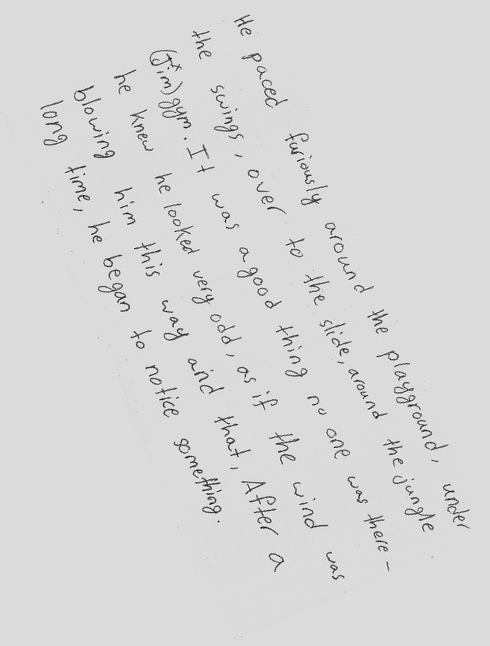 He paced furiously around the playground, under
the swings, over to the slide, around the jungle
(jim) gym. It was a good thing no one was there-
he knew he looked very odd, as if the wind was
blowing him this way and that. After a
long time, he began to notice something.